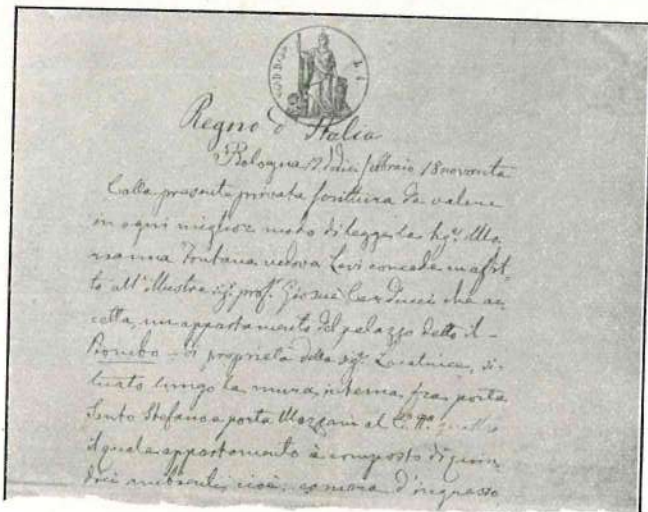 Regno d'Italia
Bologna dieci febbraio 18novanta
Colla presente privata scrittura da valere
in ogni miglior modo di legge la Sig.ra Ma-
rianna Fontana vedova Levi concede in affit-
to all'illustre sig. prof. Giosuè Carducci che ac-
cetta, un appartamento del palazzo detto il
Piombo - di proprietà della sig.ra Locatrice, si-
tuato lungo la mura interna fra porta
Santo Stefano e porta Mazzini al C. N.
il quale appartamento è composto di quin-
dici ambienti cioè: camera d'ingresso